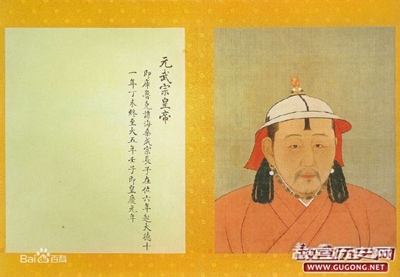 元武宗皇帝
即庫魯克諱海桑成宗長子在位六年起大德十
一年丁未終至大五年壬子即皇慶元年
Bai百科
故宫历史网
WWW.GUGONG.NET